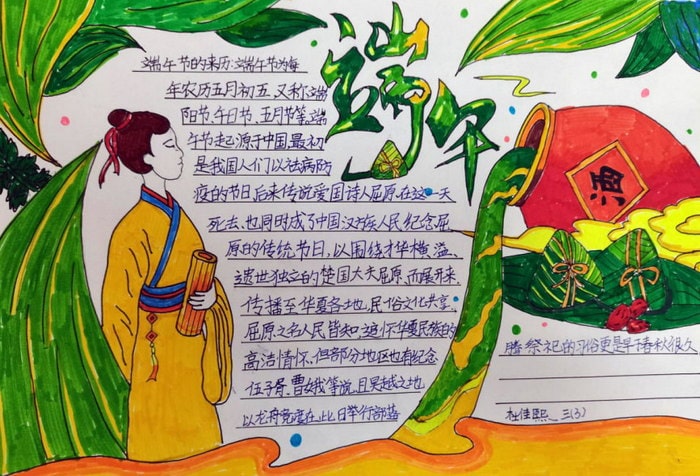 端午
端午节的来历:端午节为每
年农历五月初五,又称端
阳节、午日节、五月节等。端
午节起源于中国,最初
是我国人们以祛病防
疫的节日,后来传说爱国诗人屈原在这一天
死去,也同时成了中国汉族人民纪念屈
原的传统节日,以围绕才华横溢、
遗世独立的楚国大夫屈原而展开来,
传播至华夏各地,民俗文化共享,
屈原之名人民皆知,追怀华夏民族的
高洁情怀。但部分地区也有纪念
伍子胥、曹娥等说,且吴越之地
以龙舟竞度在此日举行部落
酒
腾祭祀的习俗更是早于春秋很久
杜佳熙 三(3)